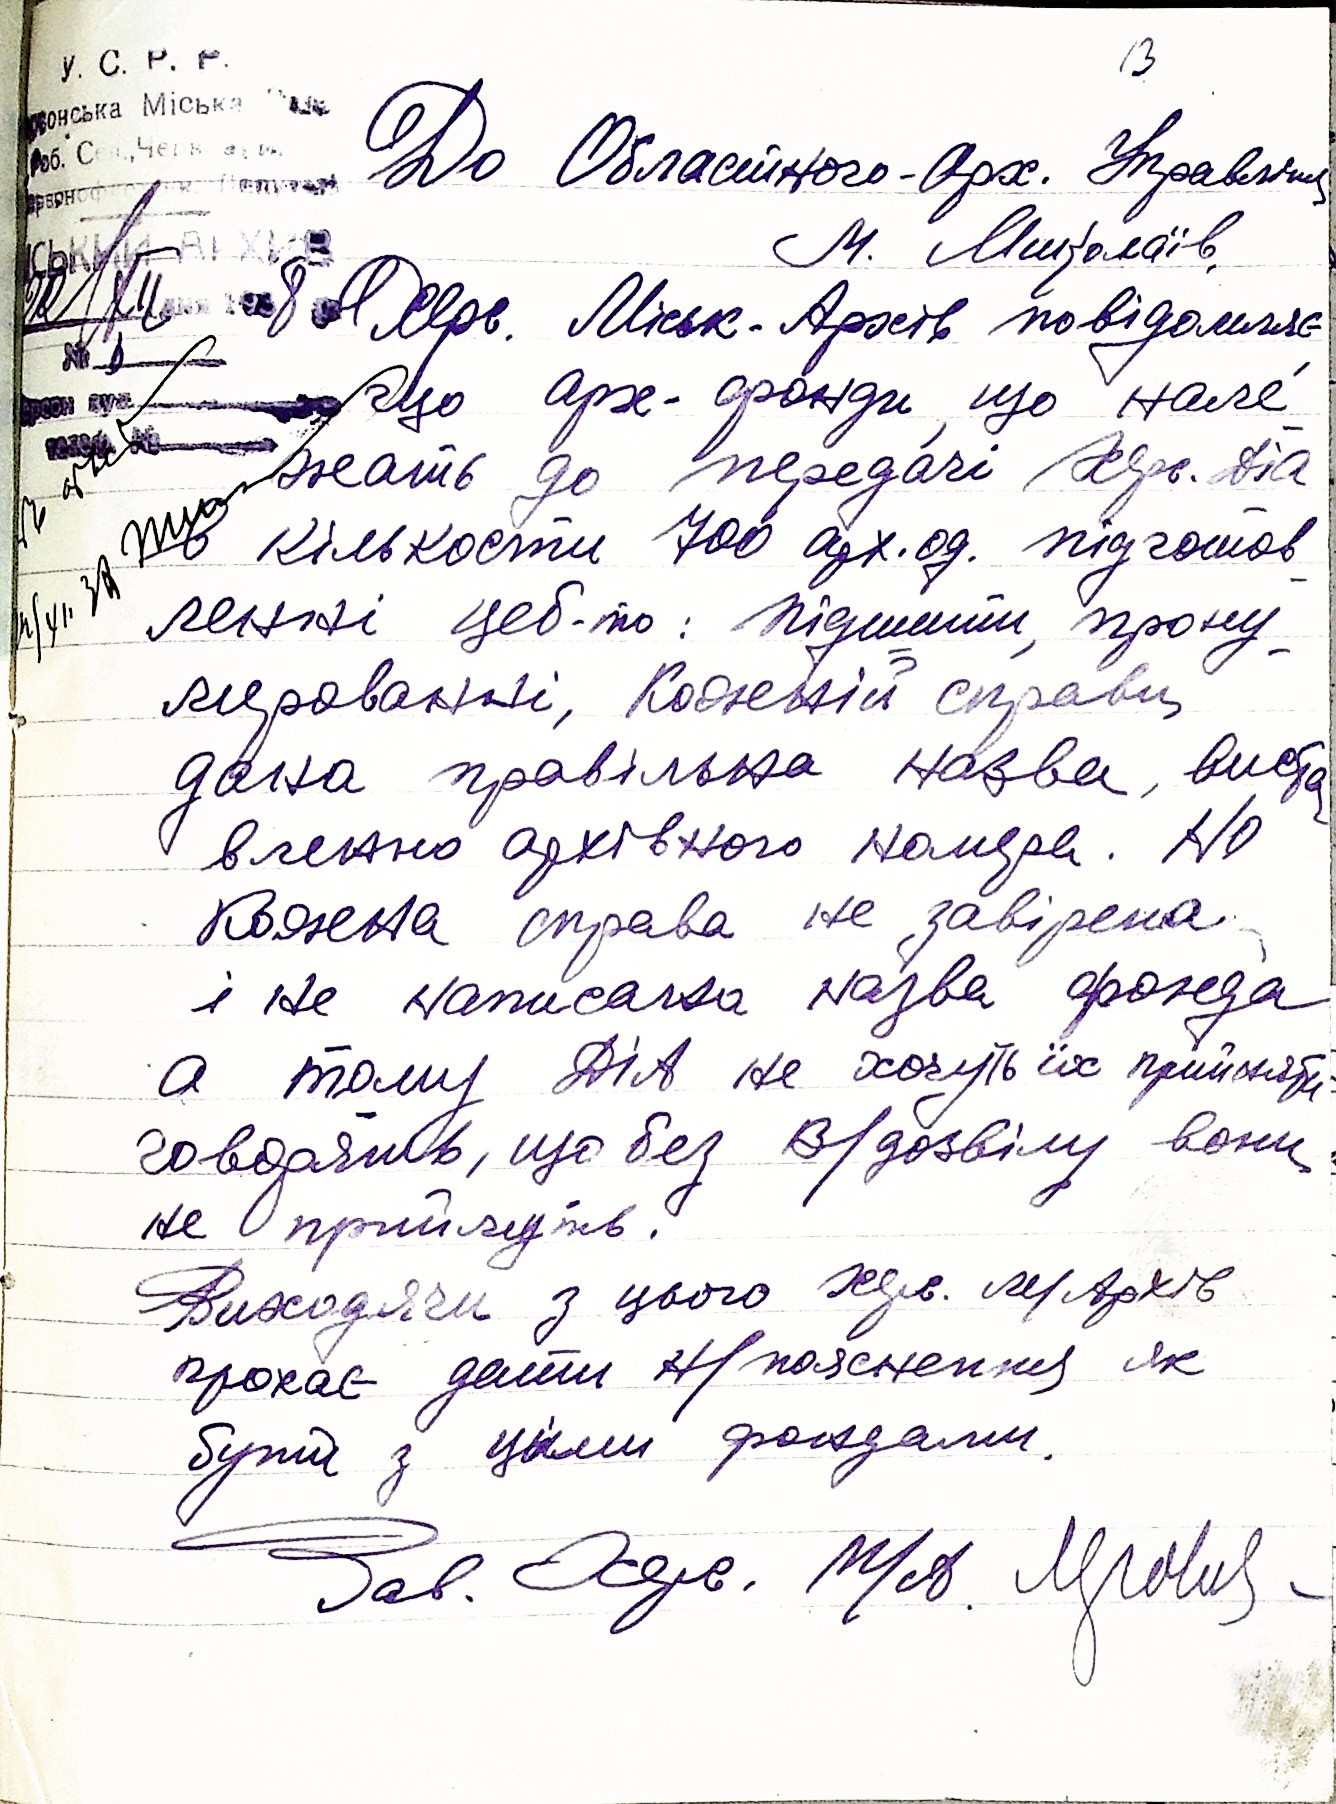 13
У. С. Р. Р.
Міська
роб. Сел.
До Обласного-Арх. Управління
М. Миколаїв.
Херс. Міськ-Архів повідомляє
що арх-фонди, що нале
жать до передачі Херс. ДіА
в кількости 700 арх.од. підготов
ленні цеб-то: підшити, прону_
мерованні, Кожній справи
дана правільна назва, виста
вленно архівного номера. Но
Кожна справа не завірена
і не написанна назва фонда
а тому ДіА не хочуть їх прийняти
говорять, що без В/дозвілу вони
не приймуть.
Виходячи з цього Херс. м/Архів
прохає дати Н/пояснення як
бути з цими фондами.
Зав. Херс. М/А.